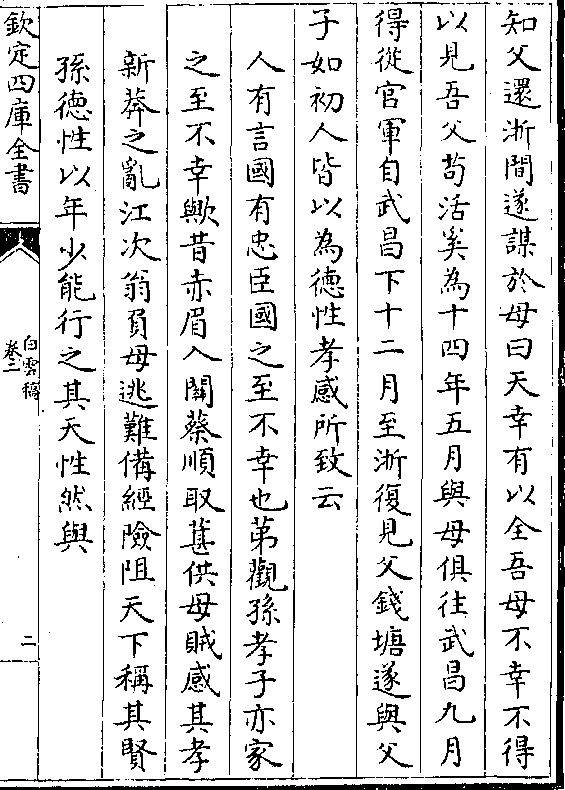 知父還浙間遂謀於母曰天幸有以全吾母不幸不得
以見吾父茍活奚為十四年五月與母俱往武昌九月
得從官軍自武昌下十二月至浙復見父錢塘遂與父
子如初人皆以為德性孝感所致云
人有言國有忠臣國之至不幸也第觀孫孝子亦家
之至不幸歟昔赤眉入關蔡順取葚供母賊感其孝
新莽之亂江次翁負母逃難備經險阻天下稱其賢
孫德性以年少能行之其天性然與
欽定四庫全書
白雲稿
卷三
二